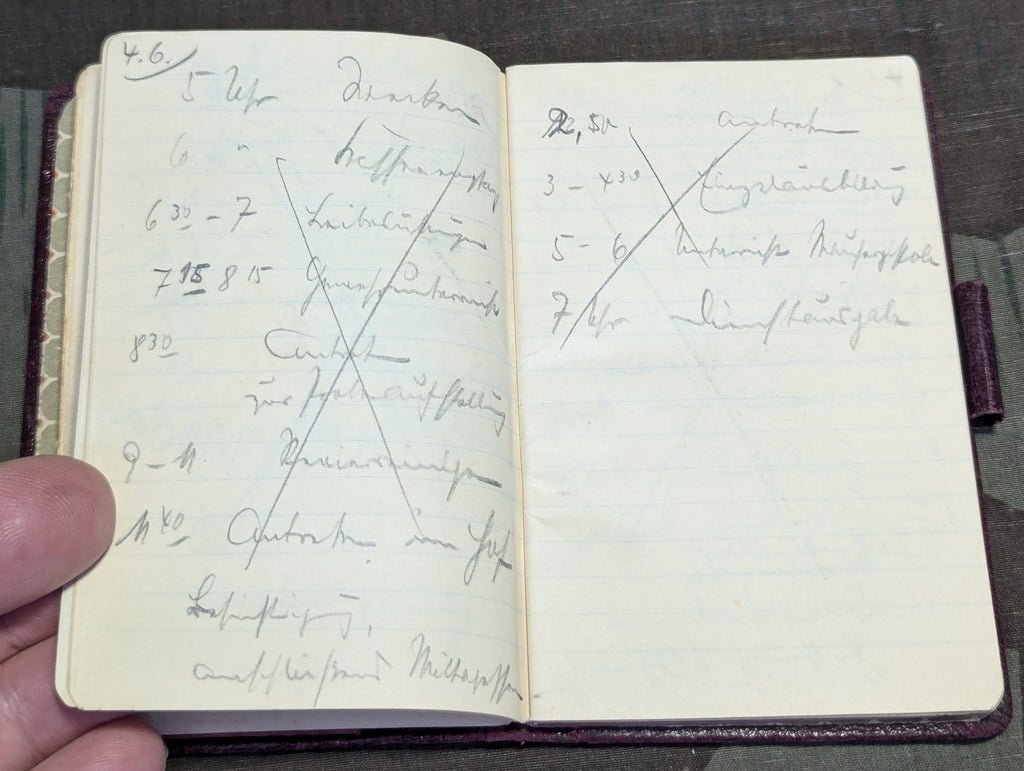 4.6.
5 Uhr Wecken
6 "
6 30 – 7 Leibesübungen
7 15 8 15
8 30 Antreten
zur aufstellung
9 – 11 Revierreinigen
11 40 Antreten im Hof
Besichtigung,
anschließend Mittagessen
2,50 Antreten
3 – 4 30 Einzelausbildung
5 – 6 Unterricht Mauserpistole
7 Uhr Dienstausgabe